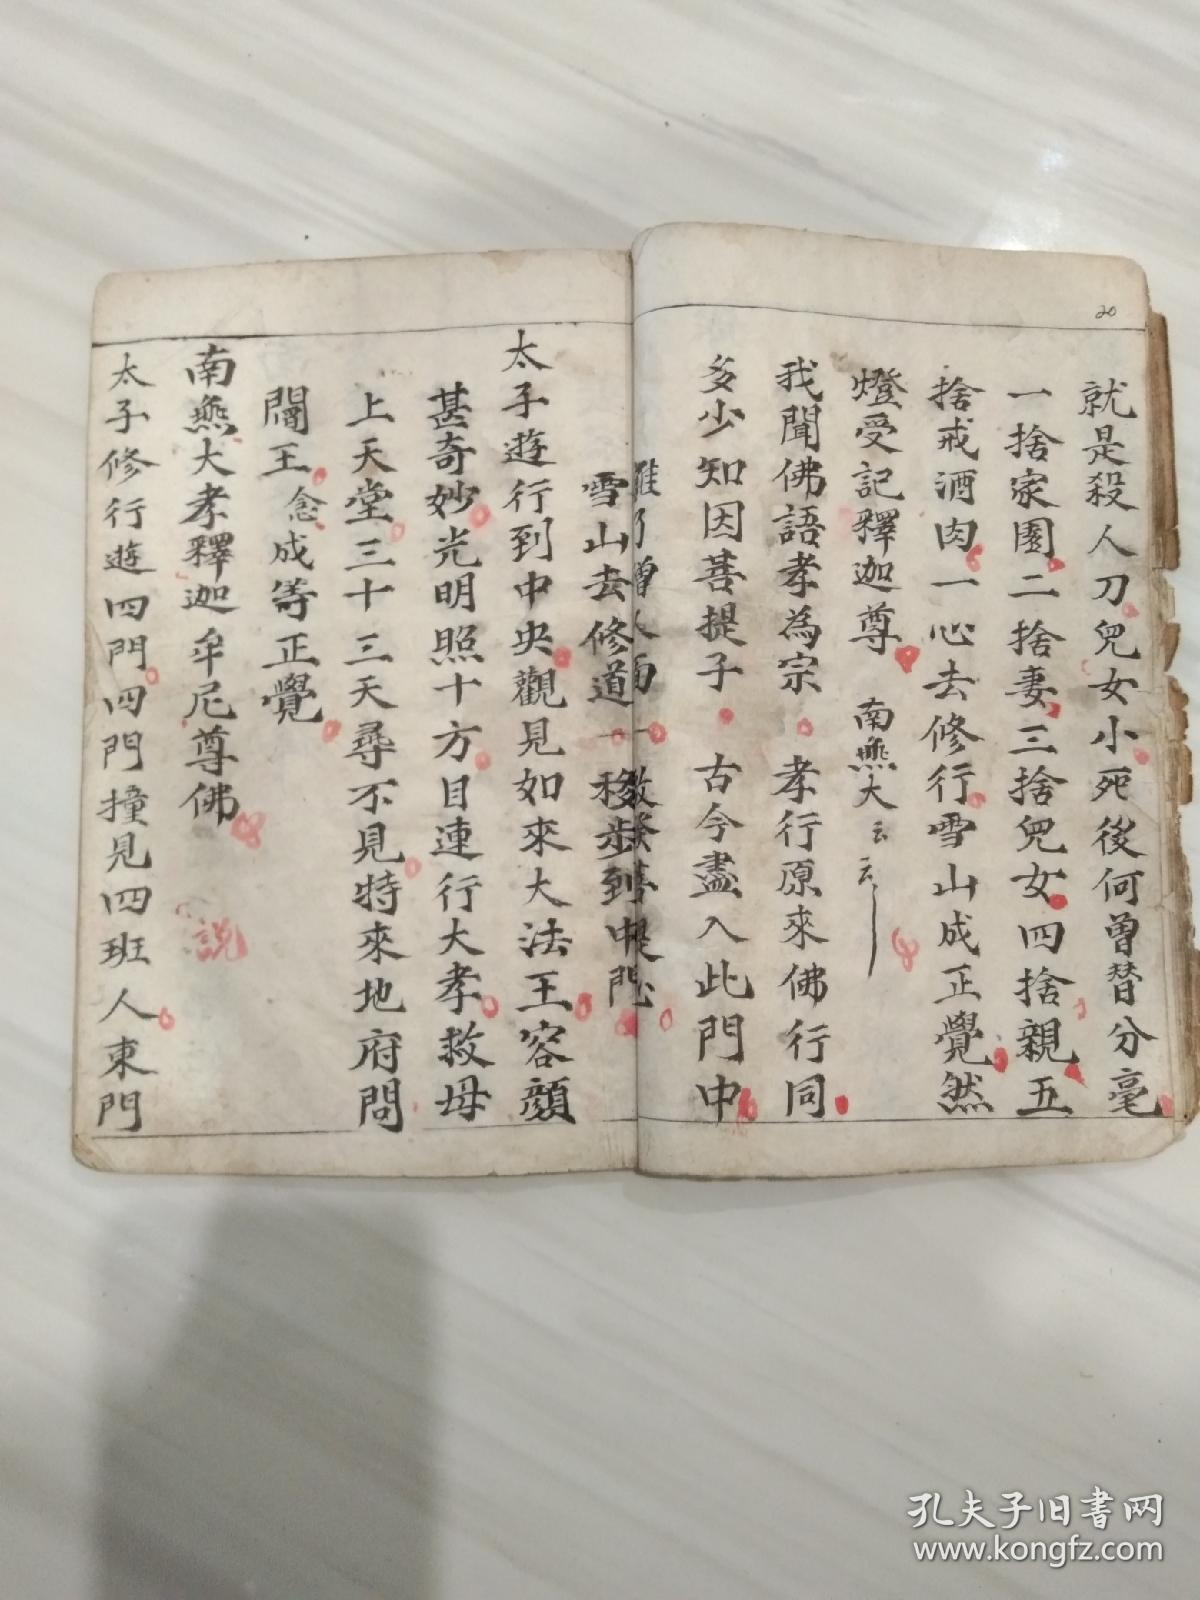 20
就是殺人刀兒女小死後何曽替分毫
一捨家園二捨妻三捨兒女四捨親五
捨戒酒肉一心去修行雪山成正覺然
燈受記釋迦尊 南無大云云
我聞佛語孝為宗 孝行原來佛行同
多少知因菩提子 古今盡入此門中
雪山去修道 移步到中門
太子遊行到中央觀見如來大法王容顔
甚奇妙光明照十方目連行大孝救母
上天堂三十三天尋不見特來地府問
閻王 念成等正覺
南無大孝釋迦牟尼尊佛 説
太子修行遊四門四門撞見四班人東門
孔夫子旧书网
www.kongfz.com